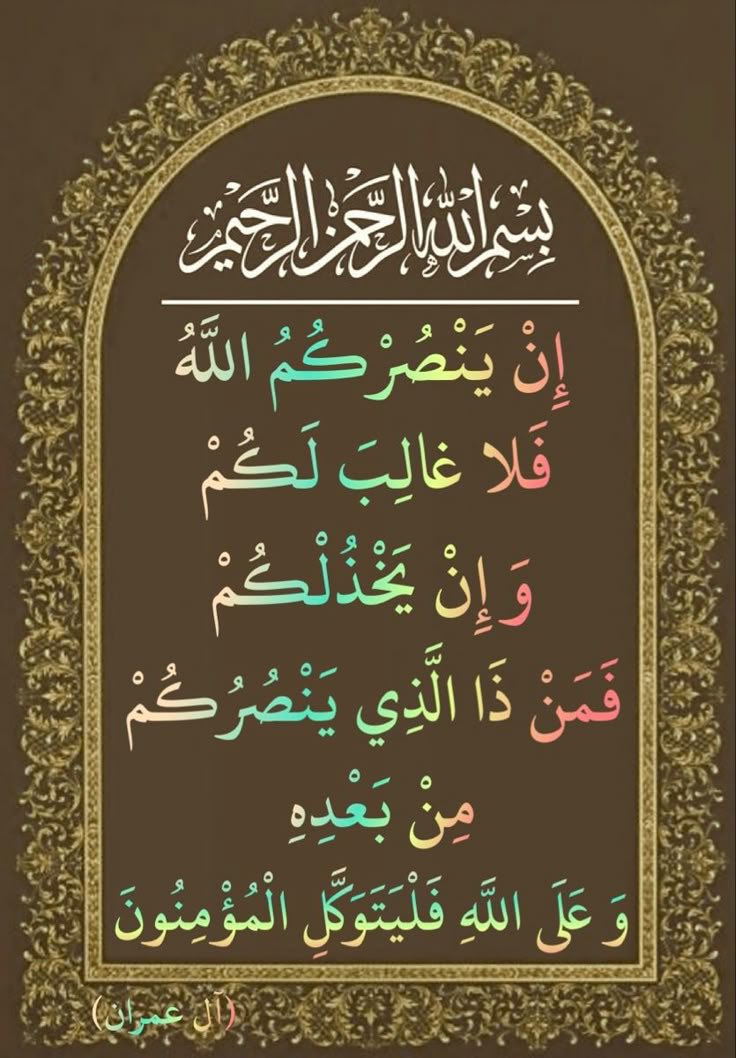 بِسْمِ اللهِ الرَّحْمٰنِ الرَّحِيْمِ
إِنْ يَنْصُرْكُمُ اللَّهُ
فَلا غالِبَ لَكُمْ
وَ إِنْ يَخْذُلْكُمْ
فَمَنْ ذَا الَّذِي يَنْصُرُكُمْ
مِنْ بَعْدِهِ
وَ عَلَى اللَّهِ فَلْيَتَوَكَّلِ الْمُؤْمِنُونَ
(آل عمران)